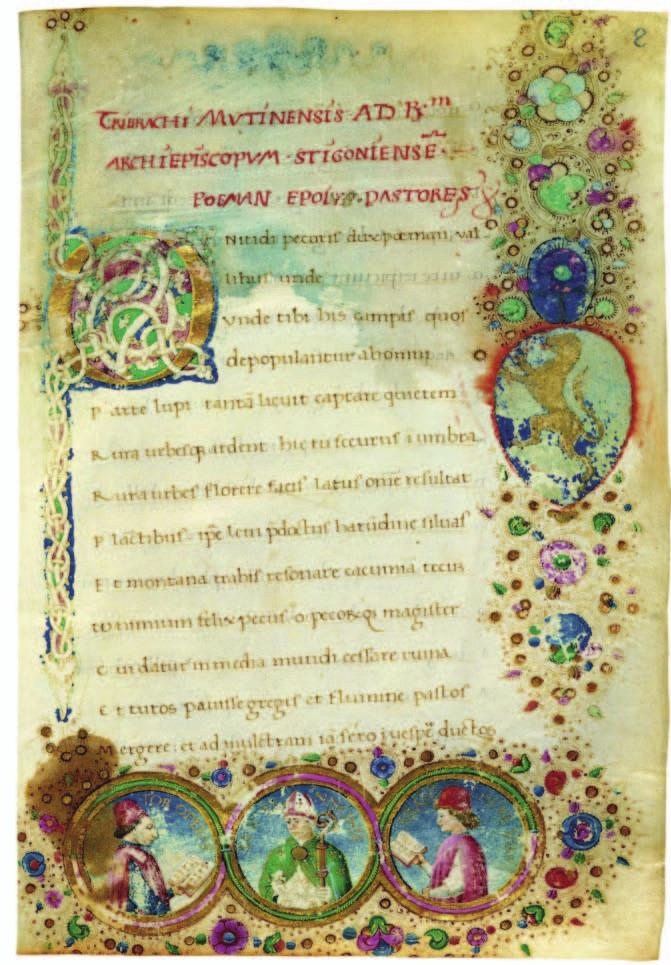 2
TRIBRACHI MVTINENSIS AD R.m
ARCHIEPISCOPVM STIGONIENSĒ
POEMAN EPOLYS PASTORES
Q
Nitidi pecoris dux poeman
libus unde
Vnde tibi his campis quos
depopulantur ab omni
Parte lupi tantā licuit captare quietem
Rura urbesq ardent hic tu securus ī umbra
Rura urbes florere facis latus om̄e resultat
Plāctibus ip̄e leui p̄doctus harūdine siluas
Et montana trahis resonare cacumīa tecum
tu nimium felix pecus o pecorꝗ magister
cui datur in media mundi cessare ruina
et tutos pauisse greges et flumine pastos
Mergere et ad mulctram iā sero ī uesp̄e ductos